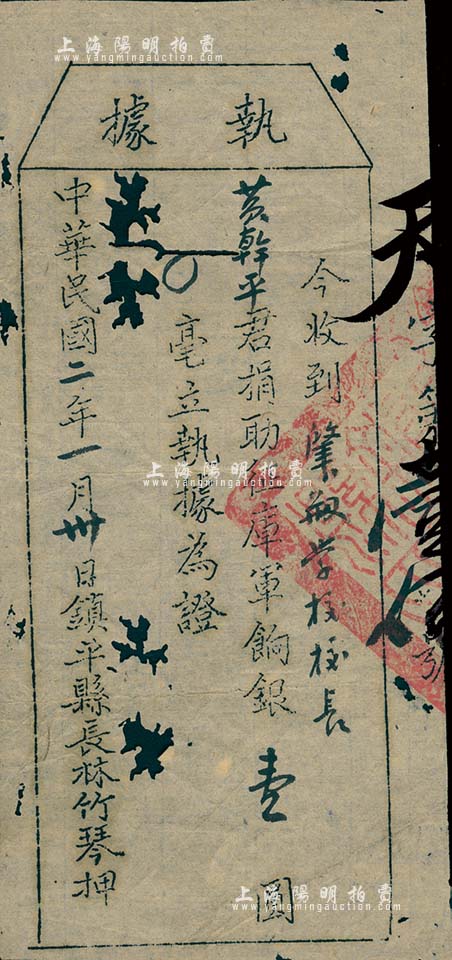 執據
今收到肇敏学校校長
黄幹平君捐助征庫軍餉銀壹圓
毫立執據為證
中華民國二年一月卅日鎮平縣長林竹琴押
字第壹
上海陽明拍賣
www.yangmingauction.com
上海陽明拍賣
www.yangmingauction.com
上海陽明拍賣
www.yangmingauction.com